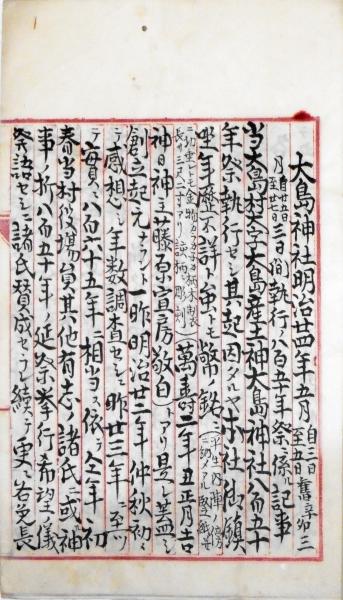 大島神社明治廿四年五月自三日至五日旧辛卯三
月自廿五日至廿七日三日間執行八百五十年祭係ル記事
当大島村大字大島産土神大島神社八百五十
年祭執行セシ其起因タルヤ本社御鎮
坐年暦不詳ト雖トモ幣ノ銘ニ
長三尺二寸アリ
萬壽二年丑正月吉
神日神主藤原宣房敬白トアリ是レ蓋シ
創立起元ナラント一昨明治廿二年仲秋初
テ感想シ年数調査セシニ昨廿三年ニ至ツ
テ実ニ八百六十五年ニ相当ス依テ今年ノ初
春当村役場員其他有志ノ諸氏ニ或ル神
事ノ折八百五十年ノ延祭挙行希望ノ儀
発語セシニ諸氏賛成セラレ続テ更ニ各惣長